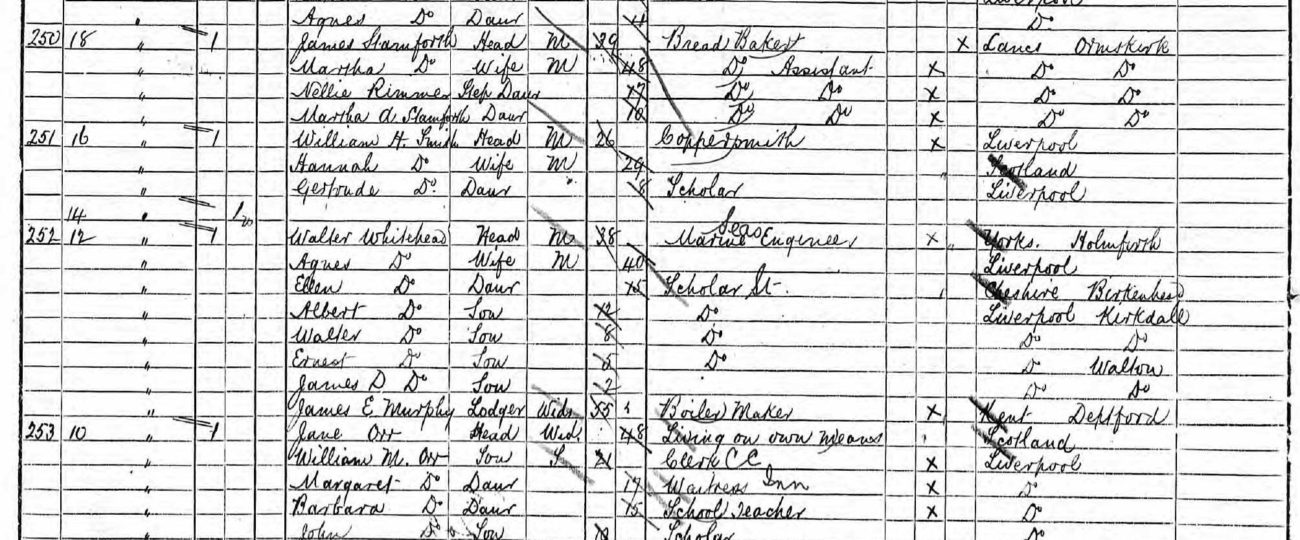 Liverpool
" Agnes Do Daur 11 Do
250 18 " 1 James Stamforth Head M 39 Bread Baker X Lancs Ormskirk
" Martha Do Wife M 48 Do Assistant X Do Do
" Nellie Rimmer Step Daur 17 Do Do X Do Do
" Martha A. Stamforth Daur Do Do X Do Do
251 16 " 1 William H. Smith Head M 26 Coppersmith X Liverpool
" Hannah Do Wife M 29 Scotland
" Gertrude Do Daur 8 Scholar Liverpool
14 "
252 12 " 1 Walter Whitehead Head M 38 Marine Seas Engineer X Yorks. Holmfirth
" Agnes Do Wife M 40 Liverpool
" Ellen Do Daur 15 Scholar St. Cheshire Birkenhead
" Albert Do Son 12 Do Liverpool Kirkdall
" Walter Do Son 8 Do Do Do
" Ernest Do Son 5 Do Do Walton
" James D Do Son 2 Do Do
" James E Murphy Lodger Widr 35 Boiler Maker X Kent Deptford
253 10 " 1 Jane Orr Head Wid. 48 Living on own Means Scotland
" William M. Orr Son S 21 Clerk C C X Liverpool
" Margaret Do Daur 17 Waitress Inn X Do
" Barbara Do Daur 15 School Teacher X Do
" John Do Son Scholar Do